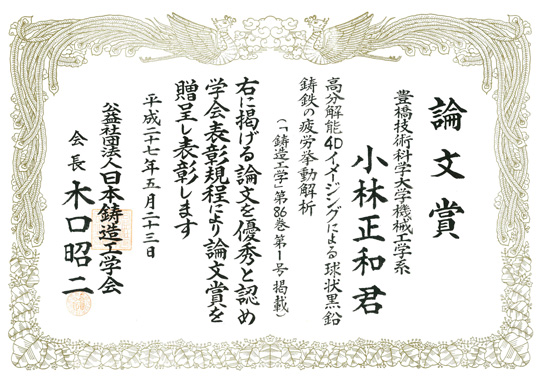 論文賞
豊橋技術科学大学機械工学系
小林正和君
高分解能4Dイメージングによる球状黒鉛
鋳鉄の疲労挙動解析
（「鋳造工学」第86巻第1号掲載）
右に掲げる論文を優秀と認め
学会表彰規程により論文賞を
贈呈し表彰します
平成二十七年五月二十三日
公益社団法人日本鋳造工学会
会長 木口昭二